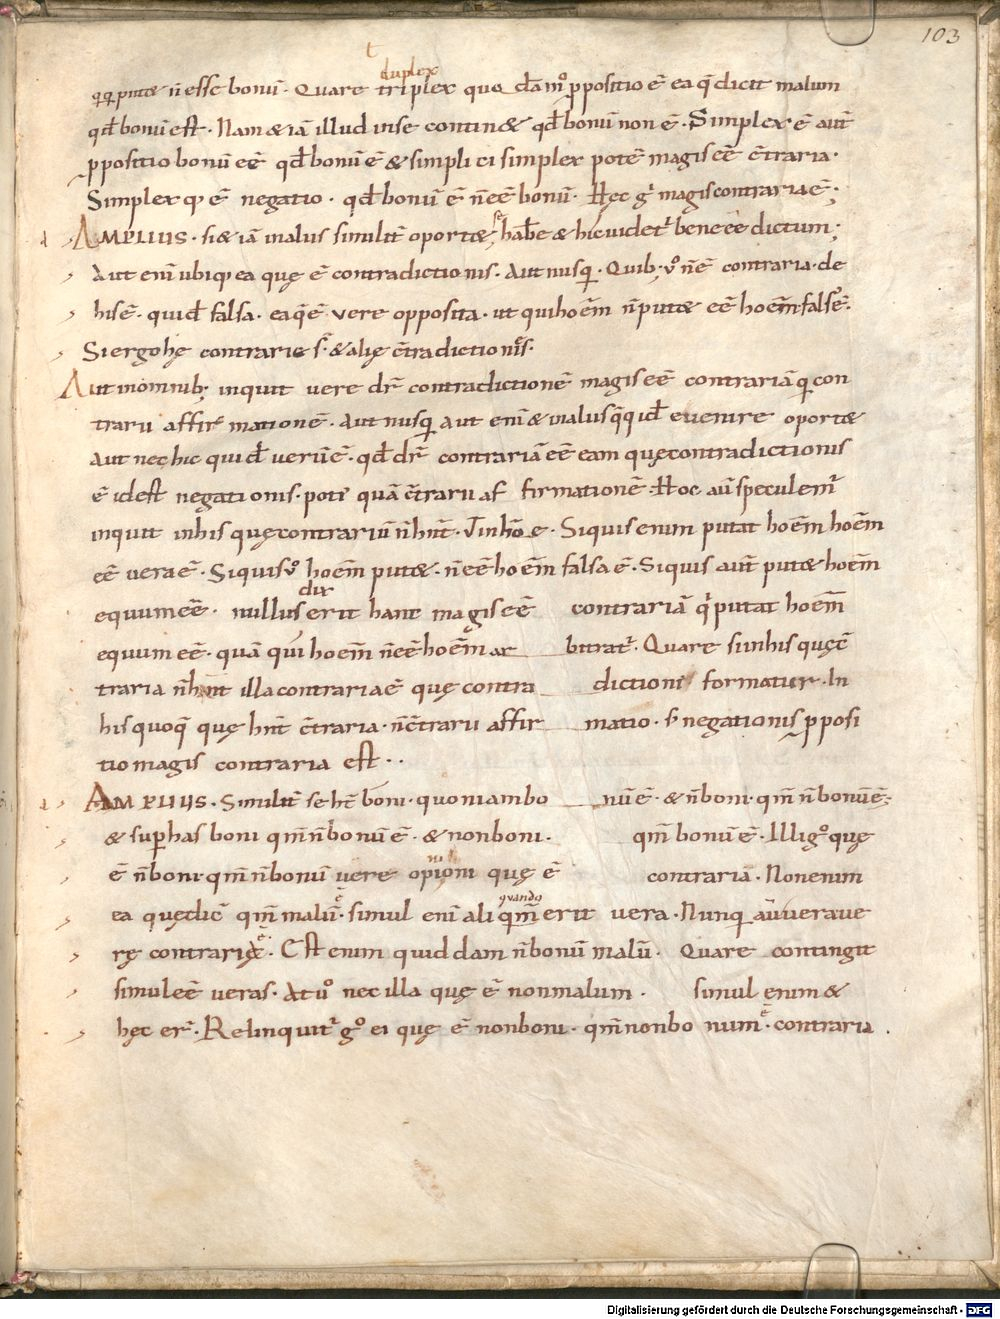 103
ł duplex
qͥqͥ putæ n̄ esse bonū · Quare triplex quodāmͦ ꝓpositio ē ea q̄ dicit malum
qd̄ bonū est · Nam & iā illud inse contin& qd̄ bonū non ē · Simplex ē aut̄
ꝓpositio bonū eē qd̄ bonū ē & simpli ci simplex potē magis eē c̄traria ·
Simplex qͦ ē negatio · qd̄ bonū ē n̄ eē bonū · Hęc gͥ magis contraria ē ;
d AMPLIUS · si & iā inalus similit̄ oportæ se habe & hic videt᷑ bene eē dictum ;
Aut enī ubiqͥ ea quę ē contradictionis · Aut nusqͣ · Quib; vͦ n̄ ē contraria · de
his ē · quid̄ falsa · ea q̄ ē vere opposita · ut qui hoēm n̄ putæ eē hoēm falsꝰ ē ·
Si ergo hę contrarie s̄ · & alię c̄tradictionis ·
Aut in omnib; inquit vere dr̄ contradictionē magis eē contrariā qͣ con
trarii affir mationē · Aut nusqͣ aut enī & inalus qͥqͥd̄ evenire oportæ
aut nec hic quid̄ verū ē · qd̄ dr̄ contrariā eē eam quę contradictionis
ē id est negationis · potꝰ quā c̄trarii af firmationē · Hoc aū speculem᷑
inquit inhis quę contrariū n̄ hn̄t · Vinhōe · Si quis enim putat hoēm hoēm
eē vera ē · Si quis vͦ hoēm putæ · n̄ eē hoēm falsa ē · Si quis aut̄ putæ hoēm
dix
equum eē · nullus erit hanc magis eē contrariā qͥ putat hoēm
equum eē · quā qui hoēm n̄ eē hoēm ar bitrat᷑ · Quare si inhis quę c̄
traria n̄ hn̄t illa contraria ē quę contra dictioni formatur · In
his quoq̄ quę hn̄t c̄traria · n̄ c̄trarii affir matio · s̄ negationis ꝓposi
tio magis contraria est · ·
d AMPLIUS · Similit̄ se hē boni · quoniam bo nū ē · & n̄ boni · qm̄ n̄ bonū ē ;
& suꝑ has boni qm̄ n̄ bonū ē · & non boni · qm̄ bonū ē · Illi gͦ quę
ē n̄ boni · qm̄ n̄ bonū vere opinioni quę ē contrariā · Non enim
quando
ea quę dic̄ qm̄ malū ē · simul enī ali qm̄ erit vera · Nunqͣ aū vera ve
rę contraria ē · Est enim quid dam n̄ bonū malū · Quare contingit
simul eē veras · At vͦ nec illa quę ē non malum · simul enim &
hęc er̄ · Relinquit᷑ gͦ ei quę ē non boni · qm̄ non bo num ē · contraria ·
Digitalisierung gefördert durch die Deutsche Forschungsgemeinschaft - DFG